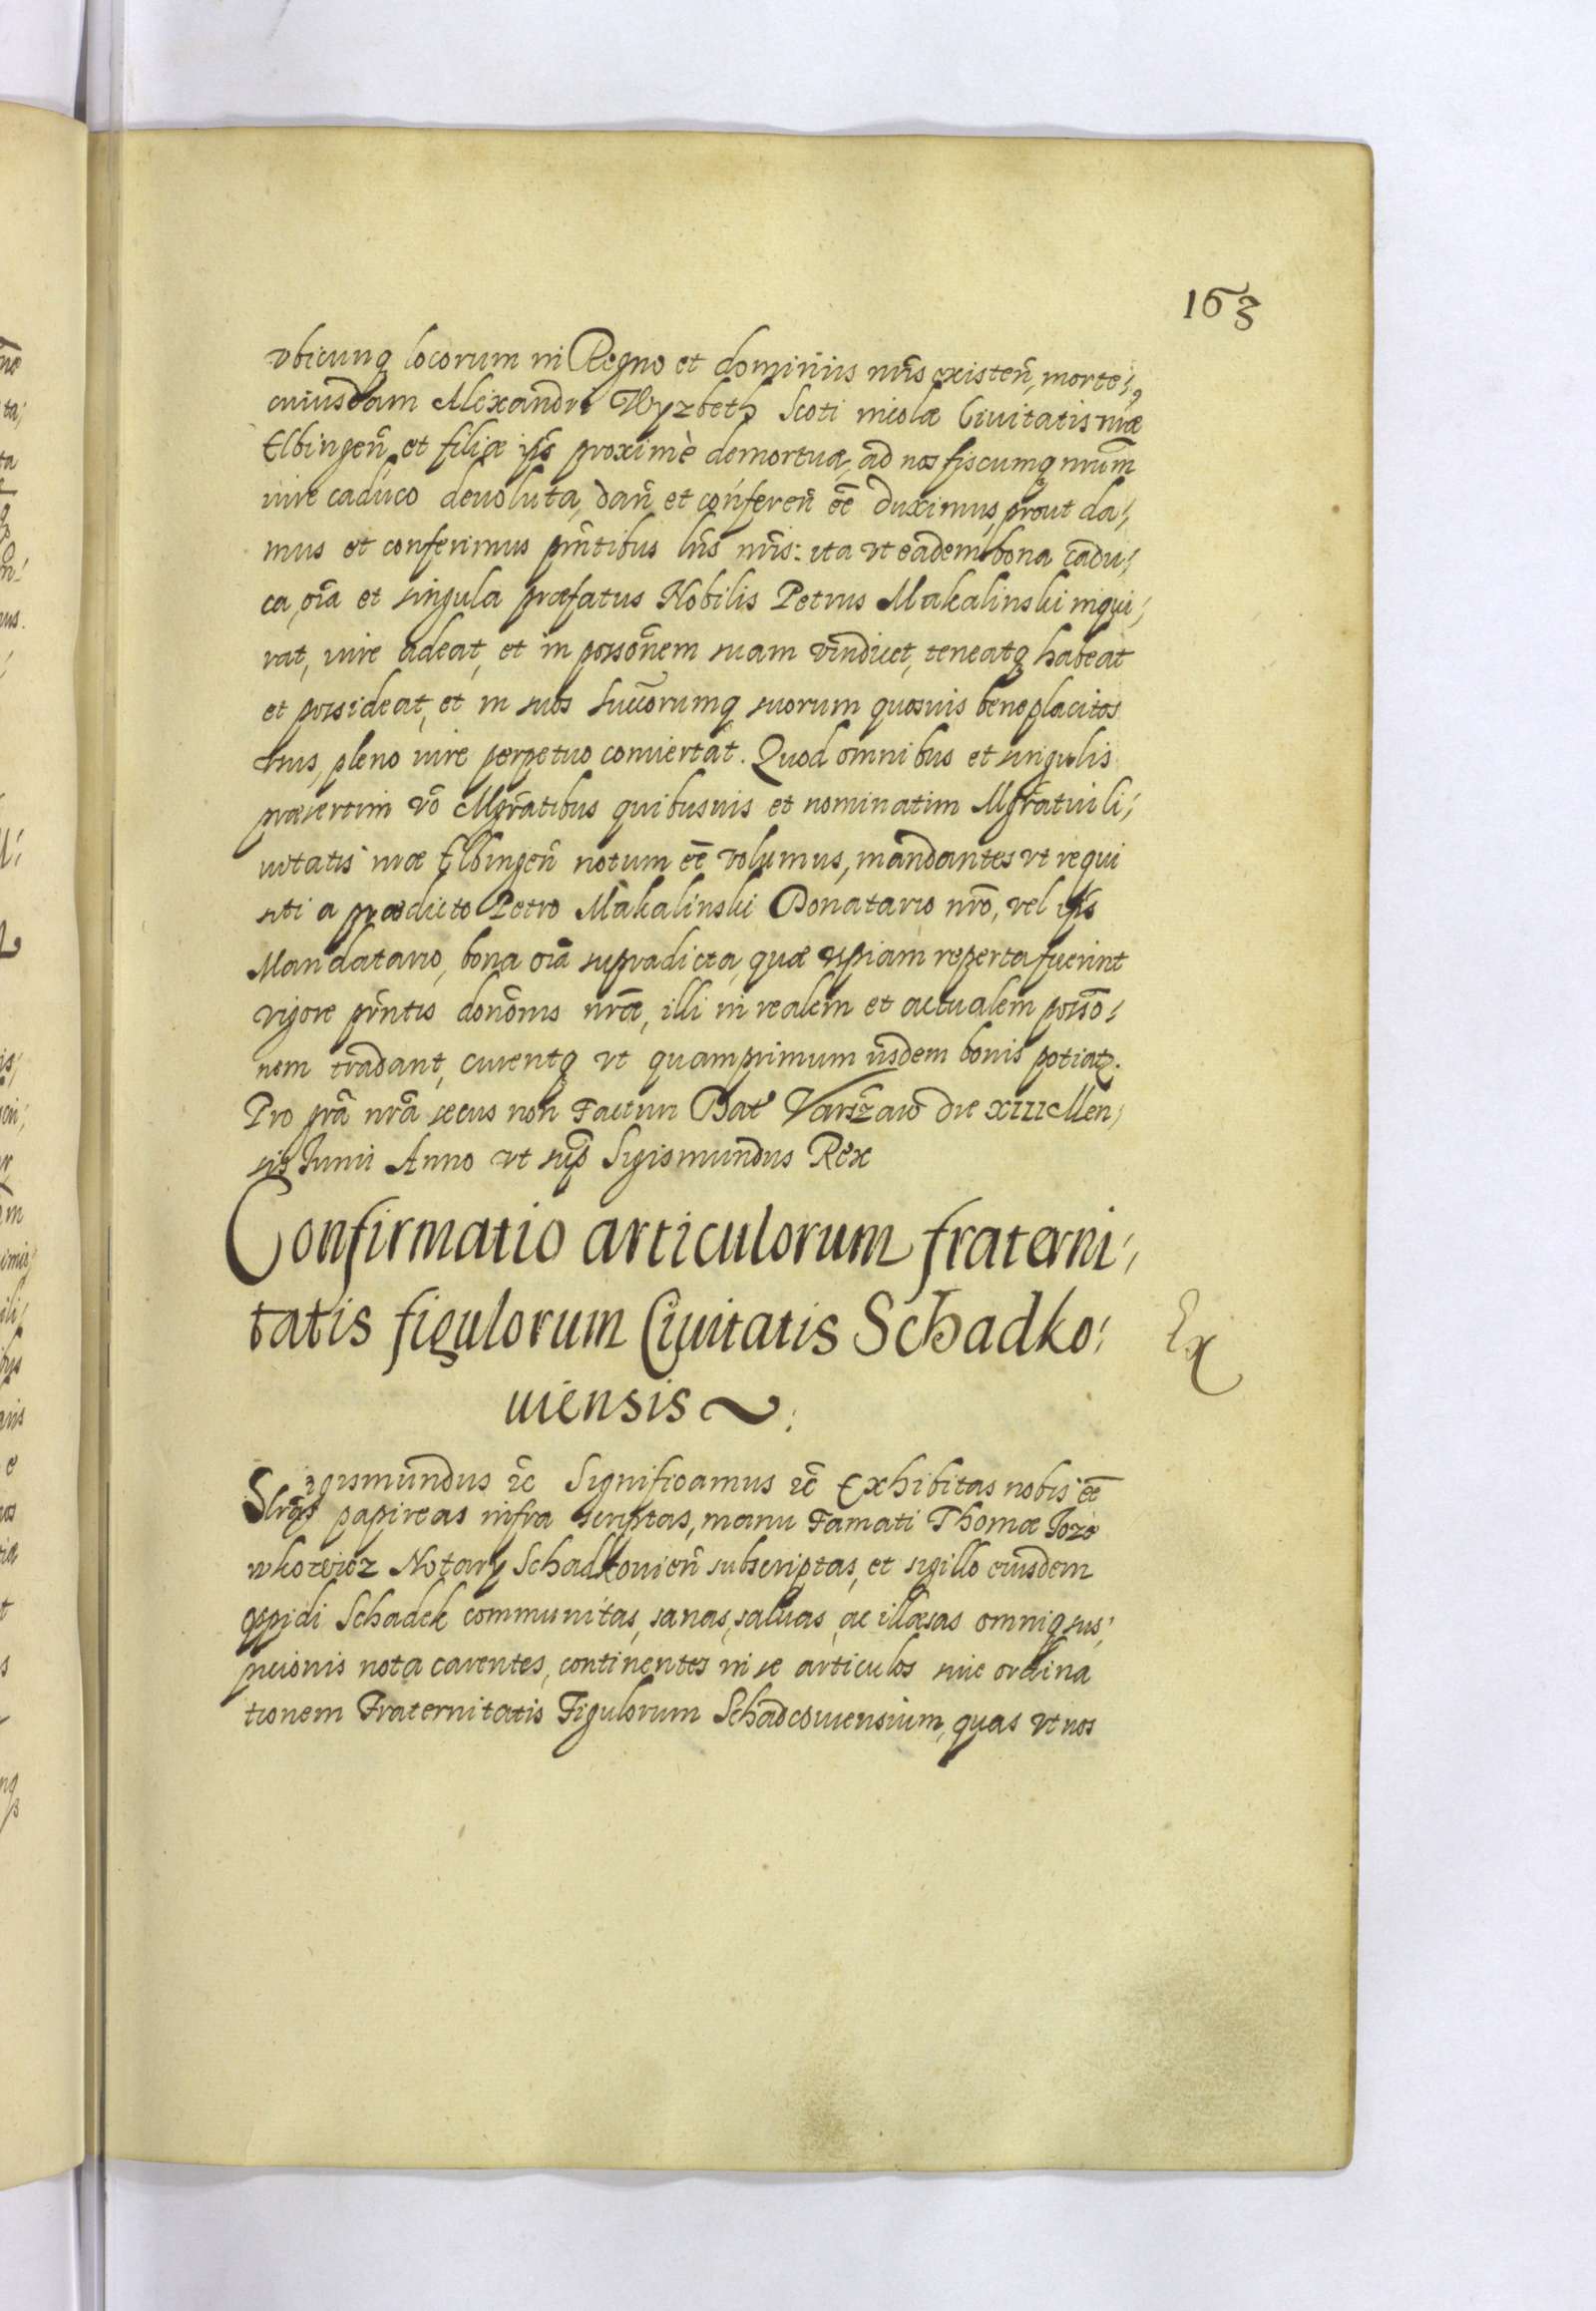 163
vbicunq locorum in Regno et dominiis nris existen, morte,
cuiusdam Alexandri Wyzbeth Scoti incolæ Ciuitatis nræ
Elbingen et filiæ ips proximè demortuæ, ad nos fiscumq nrum
iure caduco deuoluta, dan et conferen ee duximus, prout da,,
mus et conferimus pntibus lris nris: ita vt eadem bona cadu,,
ca, oia et singula præfatus Nobilis Petrus Makalinski inqui,,
rat, iure adeat, et in possonem suam vindicet, teneatq habeat
et possideat, et in suos succorumq suorum quosuis beneplacitos
vsus, pleno iure perpetuo conuertat. Quod omnibus et singulis
præsertim vo Mgratibus quibusuis et nominatim Mgratui Ci,,
uitatis nræ Elbingen notum ee volumus, mandantes vt requi
siti a prædicto Petro Makalinski Donatario nro, vel ips
Mandatario, bona oia supradicta, quæ vspiam reperta fuerint
vigore pntis dononis nræ, illi in realem et actualem posso,,
nem tradant, curentq vt quamprimum iisdem bonis potiatr.
Pro gra nra secus non facturi Dat Varszaw die XIII Men,,
sis Junii Anno vt sup Sigismundus Rex
Confirmatio articulorum fraterni,,
tatis figulorum Ciuitatis Schadko,,
uiensis
Ex
Sigismundus &c Significamus &c Exhibitas nobis ee
lras papireas infra scriptas, manu Famati Thomæ Jozo
wkowicz Notary Schadkouien subscriptas, et sigillo eiusdem
oppidi Schadek communitas, sanas, saluas, ac illæsas omniq sus,,
picionis nota carentes, continentes in se articulos siue ordina
tionem Fraternitatis Figulorum Schadcouiensium, quas vt nos